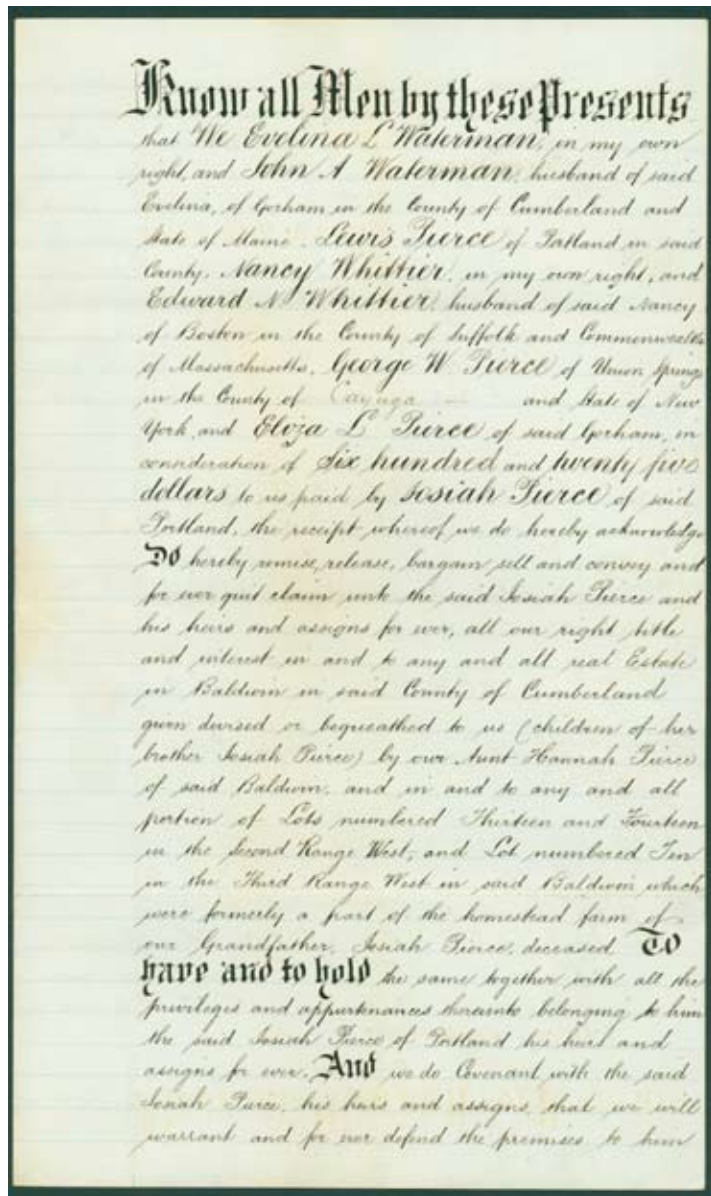 Know all Men by these Presents
that We Evelina L Waterman, in my own
right, and John A Waterman, husband of said
Evelina, of Gorham in the County of Cumberland and
State of Maine. Lewis Pierce of Portland in said
County, Nancy Whittier, in my own right, and
Edward N. Whittier, husband of said Nancy
of Boston in the County of Suffolk and Commonwealth
of Massachusetts, George W. Pierce of Union Springs
in the County of Cayuga and State of New
York, and Eloza L Pierce of said Gorham, in
consideration of Six hundred and twenty five
dollars to us paid by Josiah Pierce of said
Portland, the receipt whereof we do hereby acknowledge
Do hereby remise, release, bargain sell and convey and
for ever quit claim unto the said Josiah Pierce and
his heirs and assigns for ever, all our right title
and interest in and to any and all real Estate
in Baldwin in said County of Cumberland
given devised or bequeathed to us (children of her
brother Josiah Pierce) by our Aunt Hannah Pierce
of said Baldwin, and in and to any and all
portion of Lots numbered Thirteen and Fourteen
in the Second Range West, and Lot numbered Ten
in the Third Range West in said Baldwin which
were formerly a part of the homestead farm of
our Grandfather, Josiah Pierce, deceased. To
have and to hold the same together with all the
privileges and appurtenances thereunto belonging to him
the said Josiah Pierce of Portland his heirs and
assigns for ever. And we do Covenant with the said
Josiah Pierce, his heirs and assigns, that we will
warrant and for ever defend the premises to him